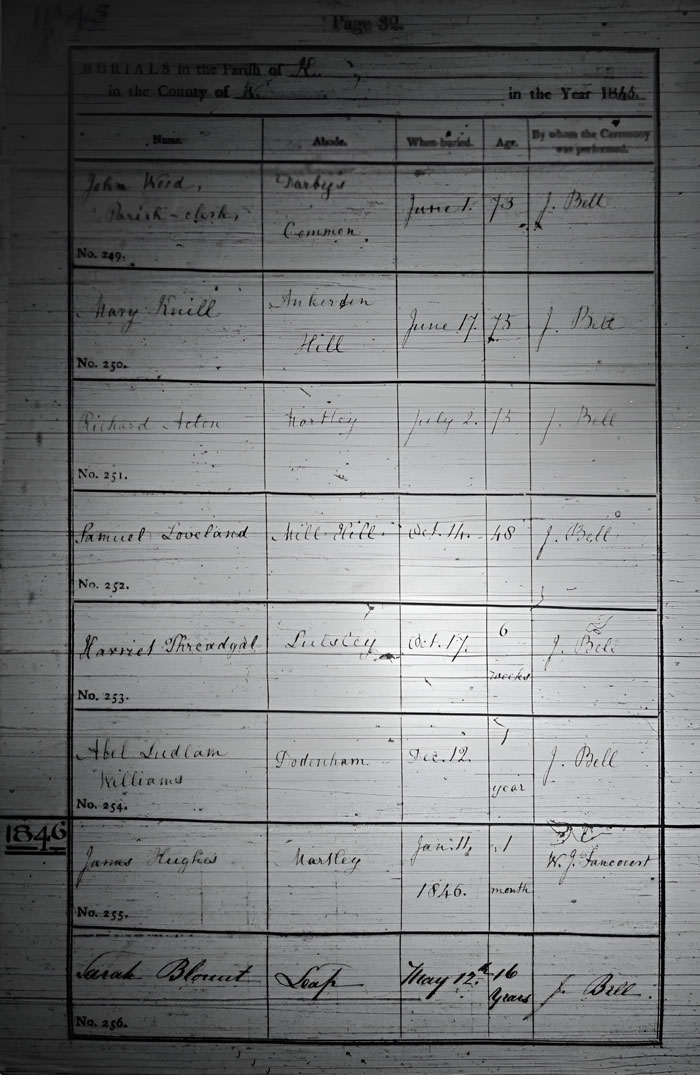 1845
Page 32.
BURIALS in the Parish of K.
in the County of W. in the Year 1845.
Name. Abode. When buried. Age. By whom the Ceremony
was performed.
John Wood, Darby's
Parish-clerk, Common June 1. 73 J. Bell
No. 249.
Mary Knill Ankerden
Hill June 17. 75 J. Bell
No. 250.
Richard Acton Martley July 2. 75 J. Bell
No. 251.
Samuel Loveland Mill Hill. Oct. 14. 48 J. Bell
No. 252.
Harriet Threadgal Lulsley Oct. 17. 6
weeks J. Bell
No. 253.
Abel Ludlam Dodenham Dec. 12. 1
Williams year J. Bell
No. 254.
1846
James Hughes Martley Jan. 11, 1 W. J. Fancourt
1846. month
No. 255.
Sarah Blount Leap May 12th 16
Years J. Bell.
No. 256.